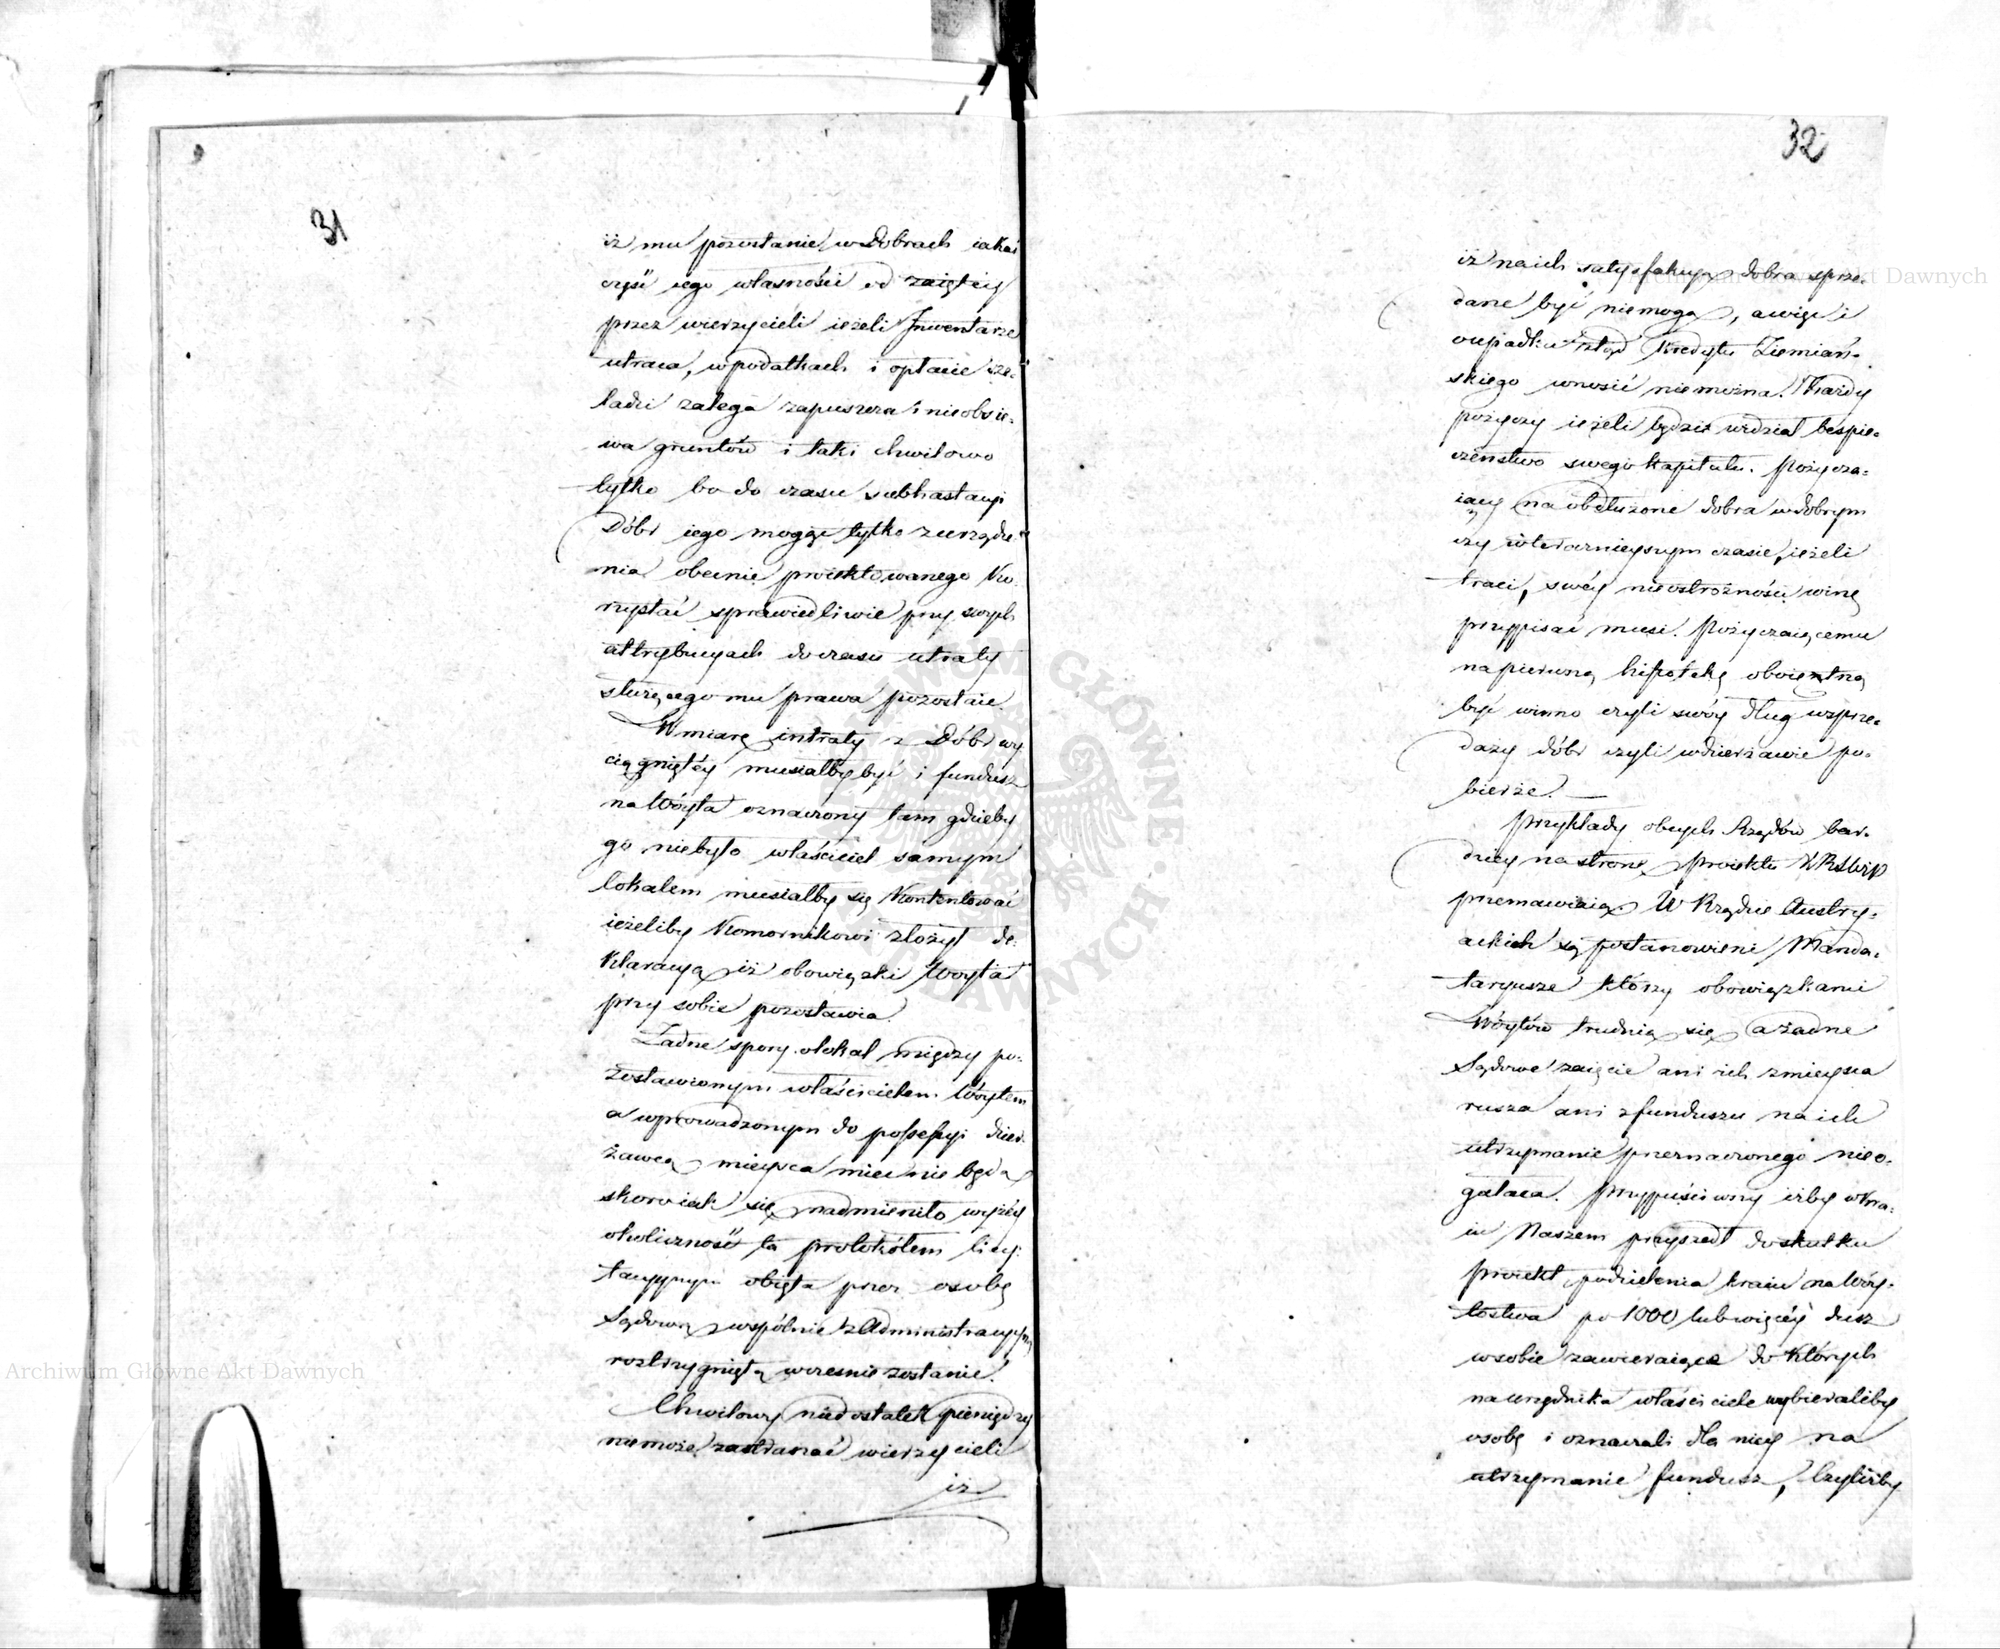 31
iż mu pozostanie w Dobrach iakaś
część iego własności od zaiętéy
przez wierzycieli ieżeli Inwentarze
utraca, w podatkach i opłacie cze-
ladzi zalega zapuszcza i nieobsie-
wa gruntów i taki chwilowo
tylko bo do czasu subhastacyi
Dóbr iego mogąc tylko z urządze-
nia obecnie proiektowanego Ko-
rzystać sprawiedliwie przy swych
attrybucyach do czasu utraty
służącego mu prawa pozostaie.
W miarę intraty z Dóbr wy
ciągniętéy musiałby być i fundusz
na Wóyta oznaczony tam gdzieby
go niebyło właściciel samym
lokalem musiałby się Kontentować
ieżeliby Komornikowi złożył de-
klaracyą iż obowiązki Woyta
przy sobie pozostawia.
Żadne spory o lokal między po-
zostawionym właścicielem Wóytem
a wprowadzonym do possessyi dzier-
żawcą mieysca mieć nie będą
skoro iak się nadmieniło wyżéy
okoliczność ta protokółem licy-
tacyjnym obięta przez osobę
Sądową wspólnie z Administracyjną
rozstrzygniętą wcześnie zostanie.
Chwilowy niedostatek pieniędzy
niemoże zastraszać wierzycieli
iż
32
iż na ich satysfakcyą dobra sprze-
dane być niemogą, a więc i
o upadku ztąd Kredytu Ziemiań-
skiego wnosić nie można. Każdy
pożyczy ieżeli będzie widział bespie-
czeństwo swego kapitału. Pożycza-
iący na obdłużone dobra w dobrym
czy w teraznieyszym czasie, ieżeli
traci, swéy nieostrożności winę
przypisać musi. Pożyczaiącemu
na pierwszą hipotekę oboiętną
być winno czyli swóy dług w sprze-
daży dóbr czyli w dzierżawie po-
bierze. —
Przykłady obcych Rządów bar-
dziéy na stronę proiektu KRSWiP
przemawiaią. W Rządzie Austry-
ackich są postanowieni Manda-
taryusze którzy obowiązkami
Wóytów trudnią się, a żadne
Sądowe zaięcie ani ich z mieysca
rusza ani z funduszu na ich
utrzymanie przeznaczonego nieo-
gałaca. Przypuściwszy iżby w Kra-
iu Naszem przyszedł do skutku
proiekt podzielenia kraiu na Wóy-
tostwa po 1000 lub więcéy dusz
w sobie zawieraiące do Których
na urzędnika właściciele wybieraliby
osobę i oznaczali dla niey na
utrzymanie fundusz, czyliżby
Archiwum Główne Akt Dawnych
Archiwum Główne Akt Dawnych
ARCHIWUM GŁÓWNE AKT DAWNYCH